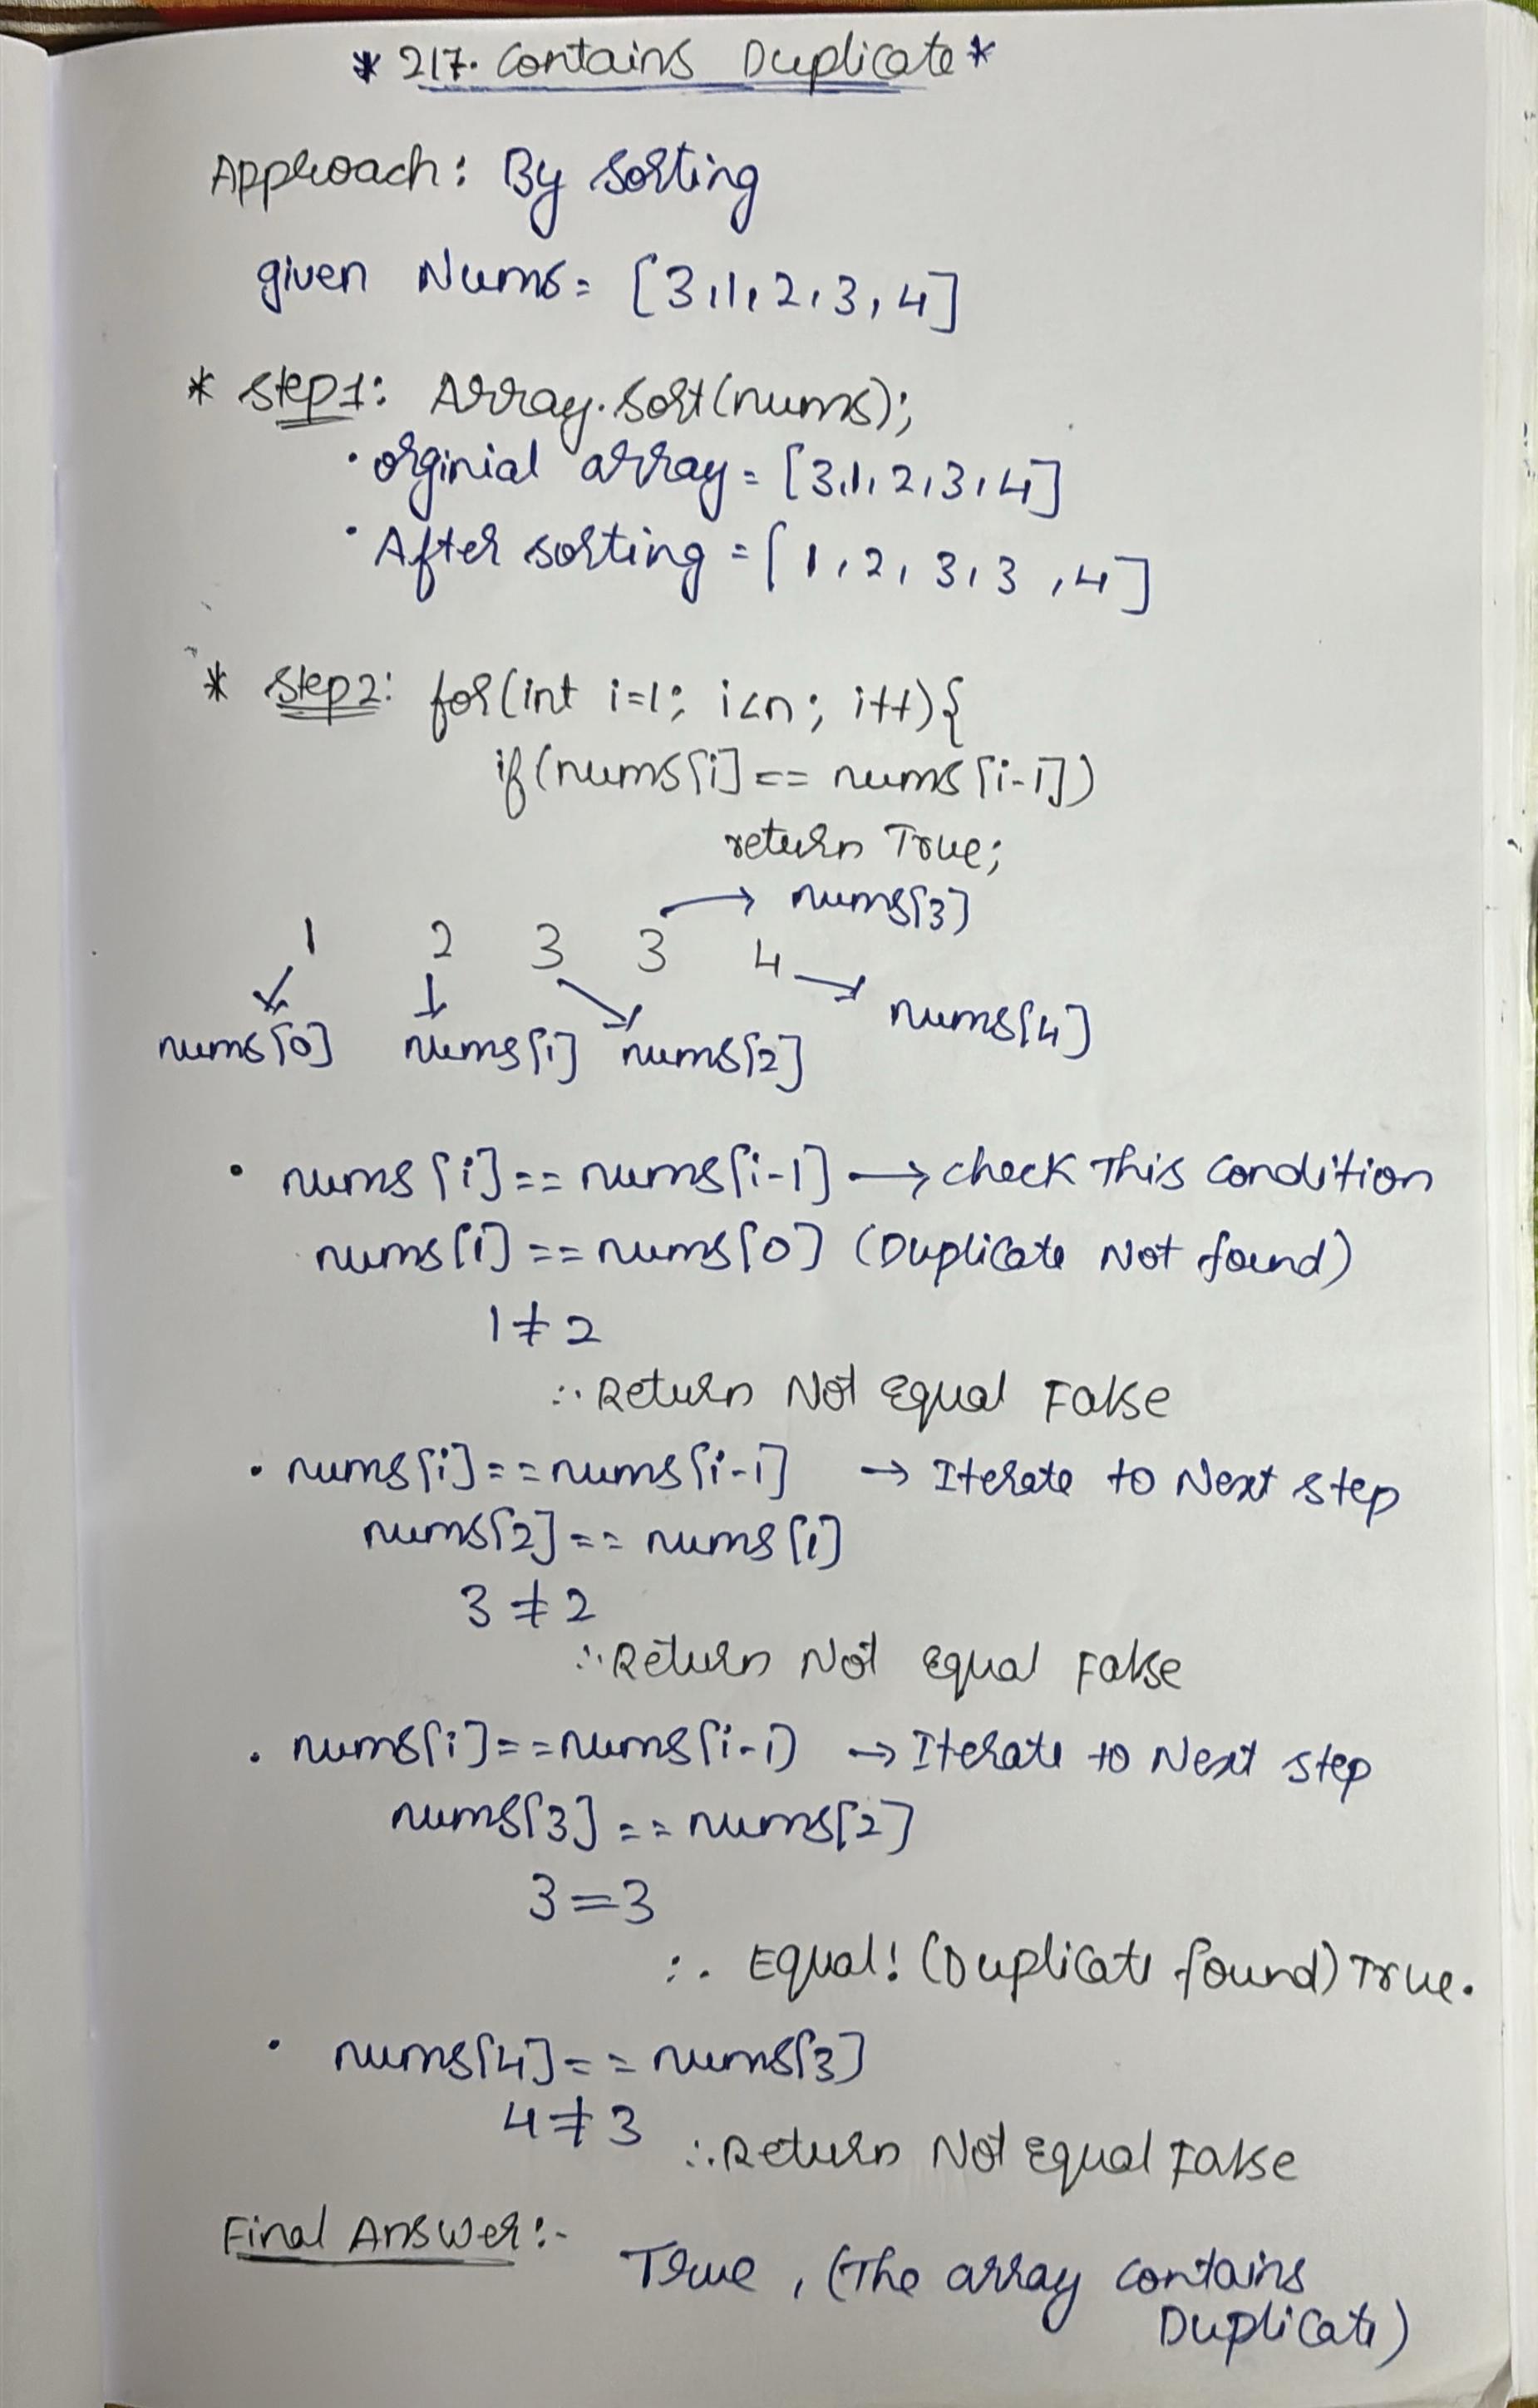 * 217. Contains Duplicate *
Approach: By Sorting
given Nums= [3,1,2,3,4]
* Step1: Array.sort(nums);
• orginial array = [3,1,2,3,4]
• After sorting = [1,2,3,3,4]
* Step2: for(int i=1; i<n; i++){
if(nums[i]== nums[i-1])
return True;
→ nums[3]
1 2 3 3 4
nums[0] nums[1] nums[2] nums[4]
• nums[i]==nums[i-1] → check This condition
nums[1]==nums[0] (Duplicate Not found)
1≠2
∴ Return Not Equal False
• nums[i]==nums[i-1] → Iterate to Next step
nums[2]== nums[1]
3≠2
∴ Return Not Equal False
• nums[i]==nums[i-1) → Iterate to Next step
nums[3]==nums[2]
3=3
∴ Equal! (Duplicate found) True.
• nums[4]==nums[3]
4≠3 ∴ Return Not Equal False
Final Answer:-
True, (The array contains
Duplicate)